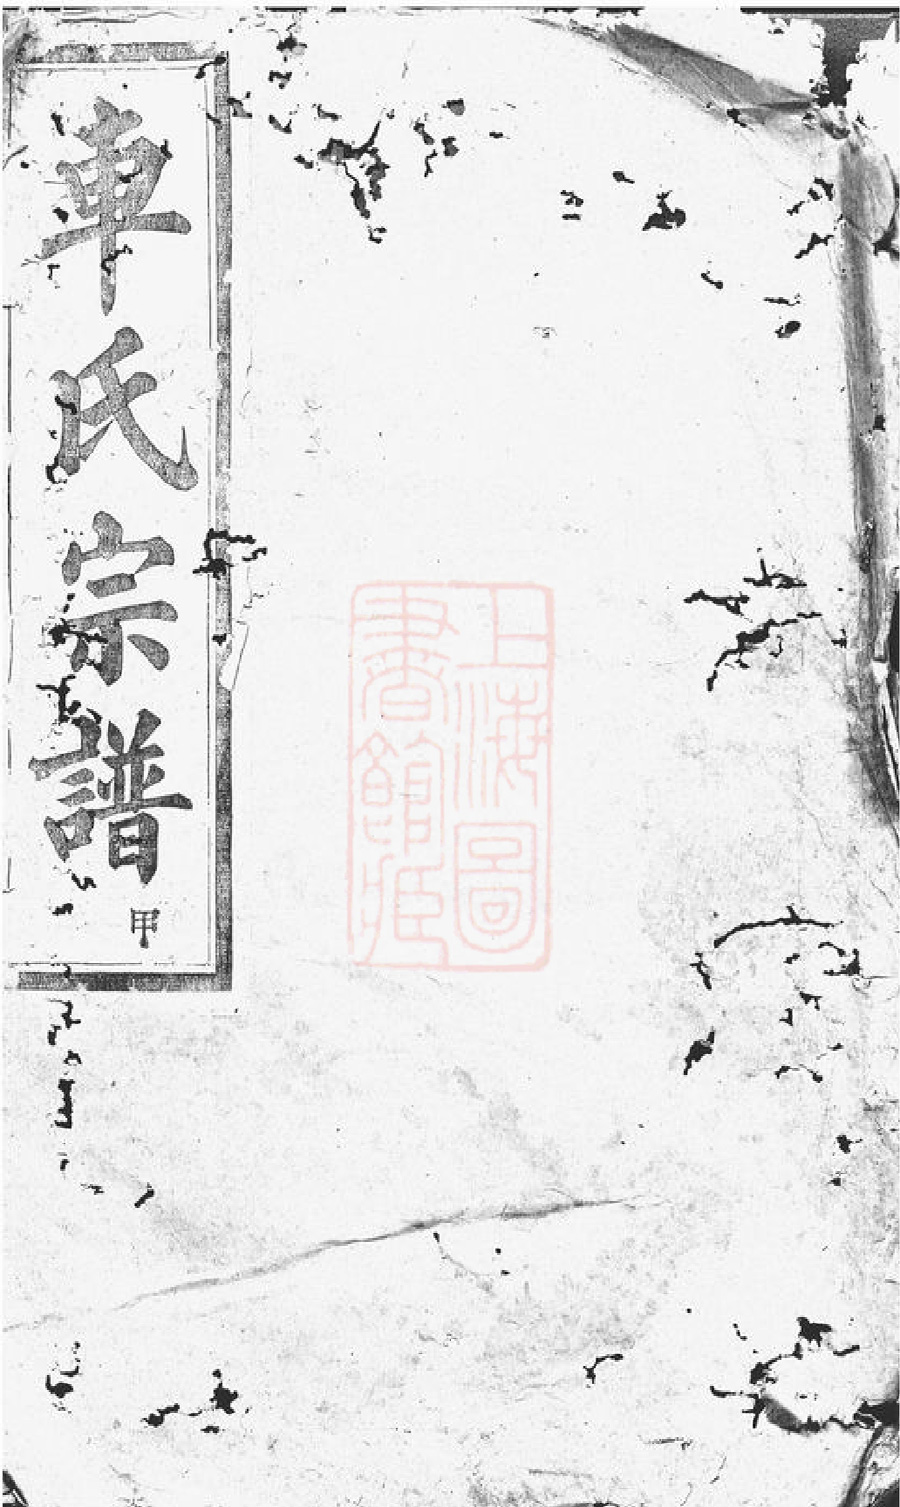 車氏宗譜
甲
上海圖
書館藏